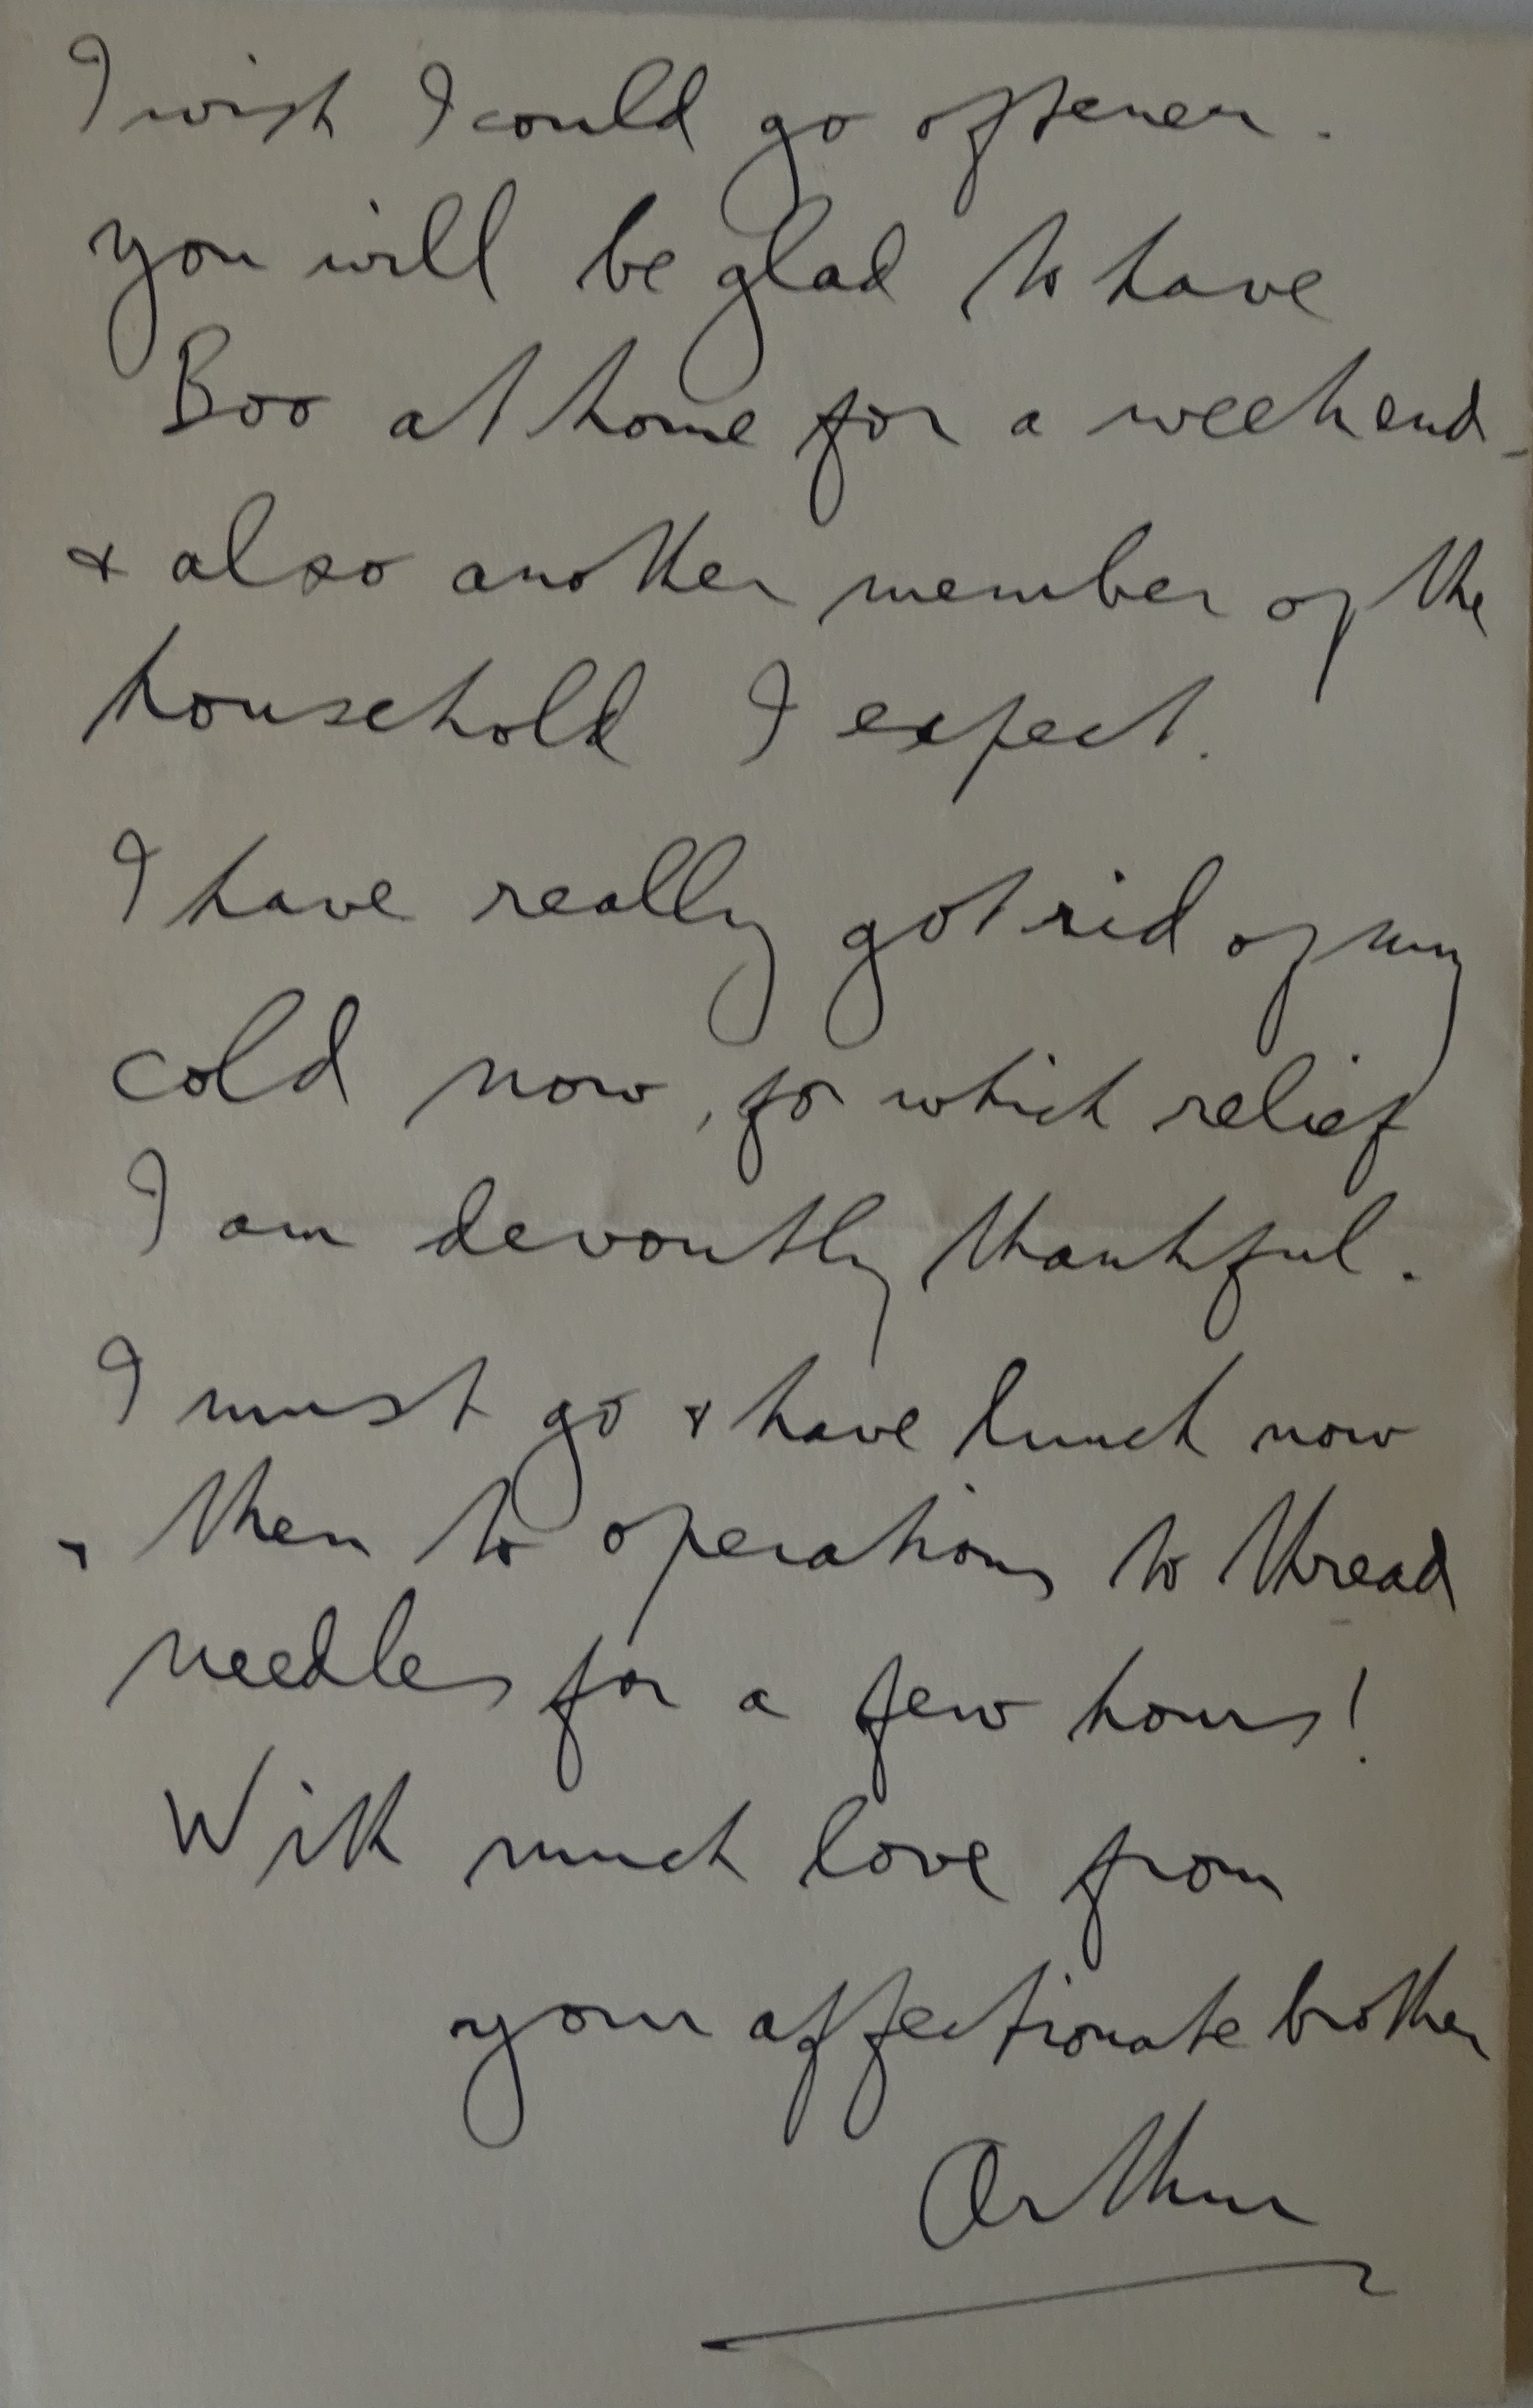 I wish I could go oftener.
you will be glad to have
Boo at home for a weekend -
& also another member of the
household I expect.
I have really got rid of my
cold now, for which relief
I am devoutly thankful.
I must go & have lunch now
& then to operations to thread
needles for a few hours!
With much love from
your affectionate brother
Arthur